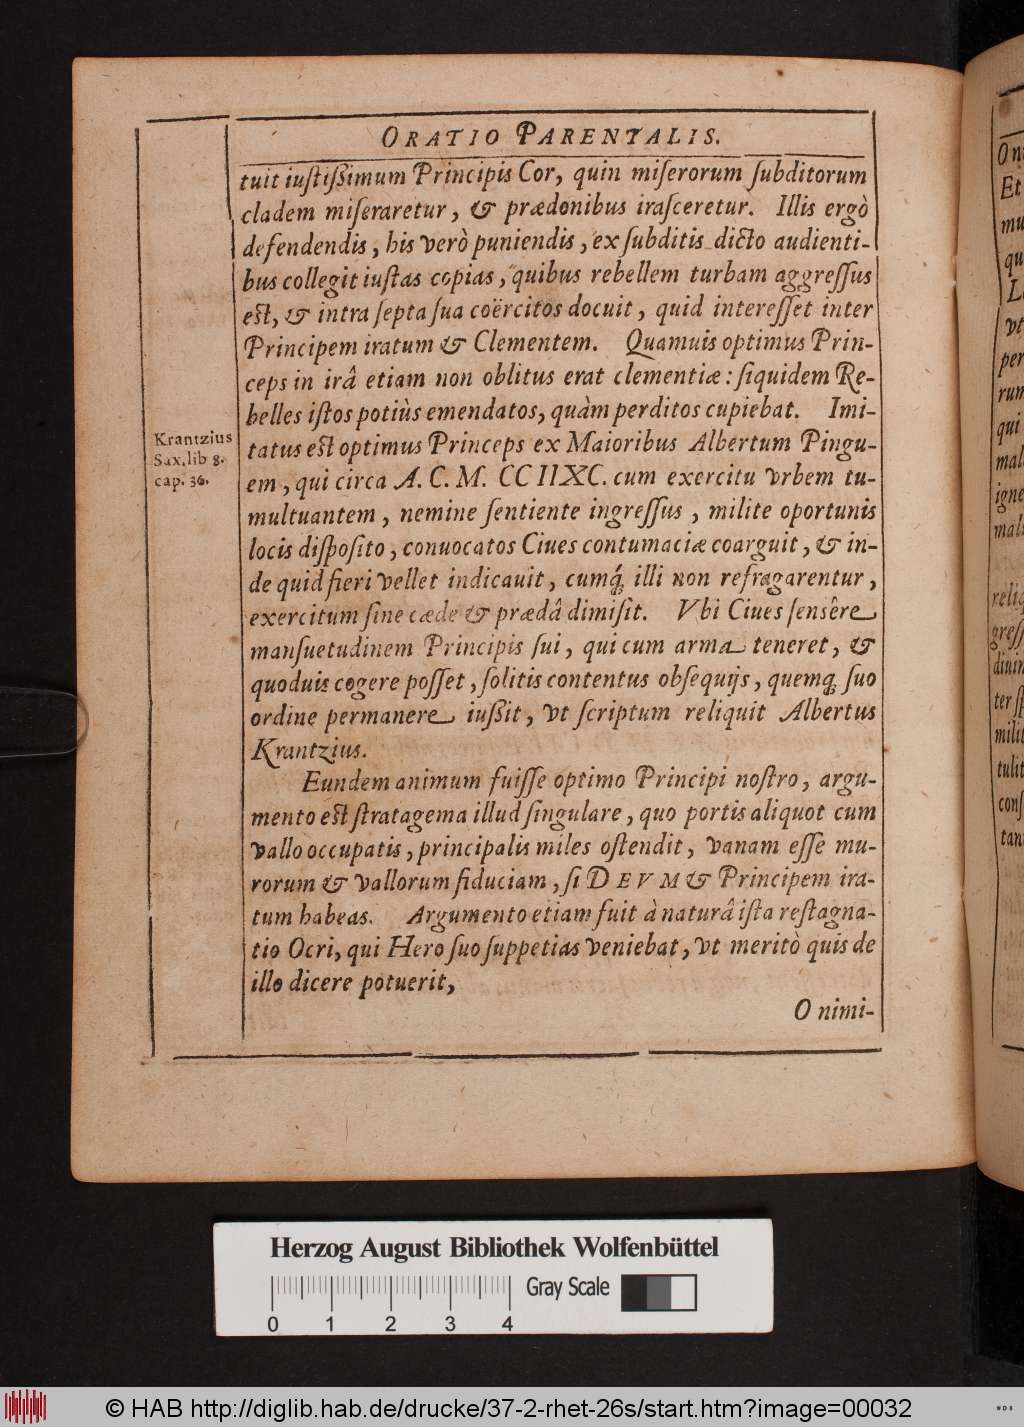 ORATIO PARENTALIS.
tuit iustißimum Principis Cor, quin miserorum subditorum
cladem miseraretur, & prædonibus irasceretur. Illis ergò
defendendis, his verò puniendis, ex subditis dicto audienti-
bus collegit iustas copias, quibus rebellem turbam aggressus
est, & intra septa sua coërcitos docuit, quid interesset inter
Principem iratum & Clementem. Quamuis optimus Prin-
ceps in irâ etiam non oblitus erat clementiæ: siquidem Re-
belles istos potiùs emendatos, quàm perditos cupiebat. Imi-
tatus est optimus Princeps ex Maioribus Albertum Pingu-
em, qui circa A. C. M. CC IIXC. cum exercitu vrbem tu-
multuantem, nemine sentiente ingressus, milite oportunis
locis disposito, conuocatos Ciues contumaciæ coarguit, & in-
de quid fieri vellet indicauit, cumq́; illi non refragarentur,
exercitum sine cæde & prædâ dimisit. Vbi Ciues sensêre
mansuetudinem Principis sui, qui cum arma teneret, &
quoduis cogere posset, solitis contentus obsequijs, quemq; suo
ordine permanere iußit, vt scriptum reliquit Albertus
Krantzius.
Eundem animum fuisse optimo Principi nostro, argu-
mento est stratagema illud singulare, quo portis aliquot cum
vallo occupatis, principalis miles ostendit, vanam esse mu-
rorum & vallorum fiduciam, si DEVM & Principem ira-
tum habeas. Argumento etiam fuit à naturâ ista restagna-
tio Ocri, qui Hero suo suppetias veniebat, vt meritò quis de
illo dicere potuerit,
O nimi-
Krantzius
Sax. lib 8.
cap. 36.
On
Et
mu
qu
vt
per
rum
qui
mal
igne
relig
gress
diuin
ter sp
milit
tulit
cons
tan
Herzog August Bibliothek Wolfenbüttel
Gray Scale
0 1 2 3 4
© HAB http://diglib.hab.de/drucke/37-2-rhet-26s/start.htm?image=00032